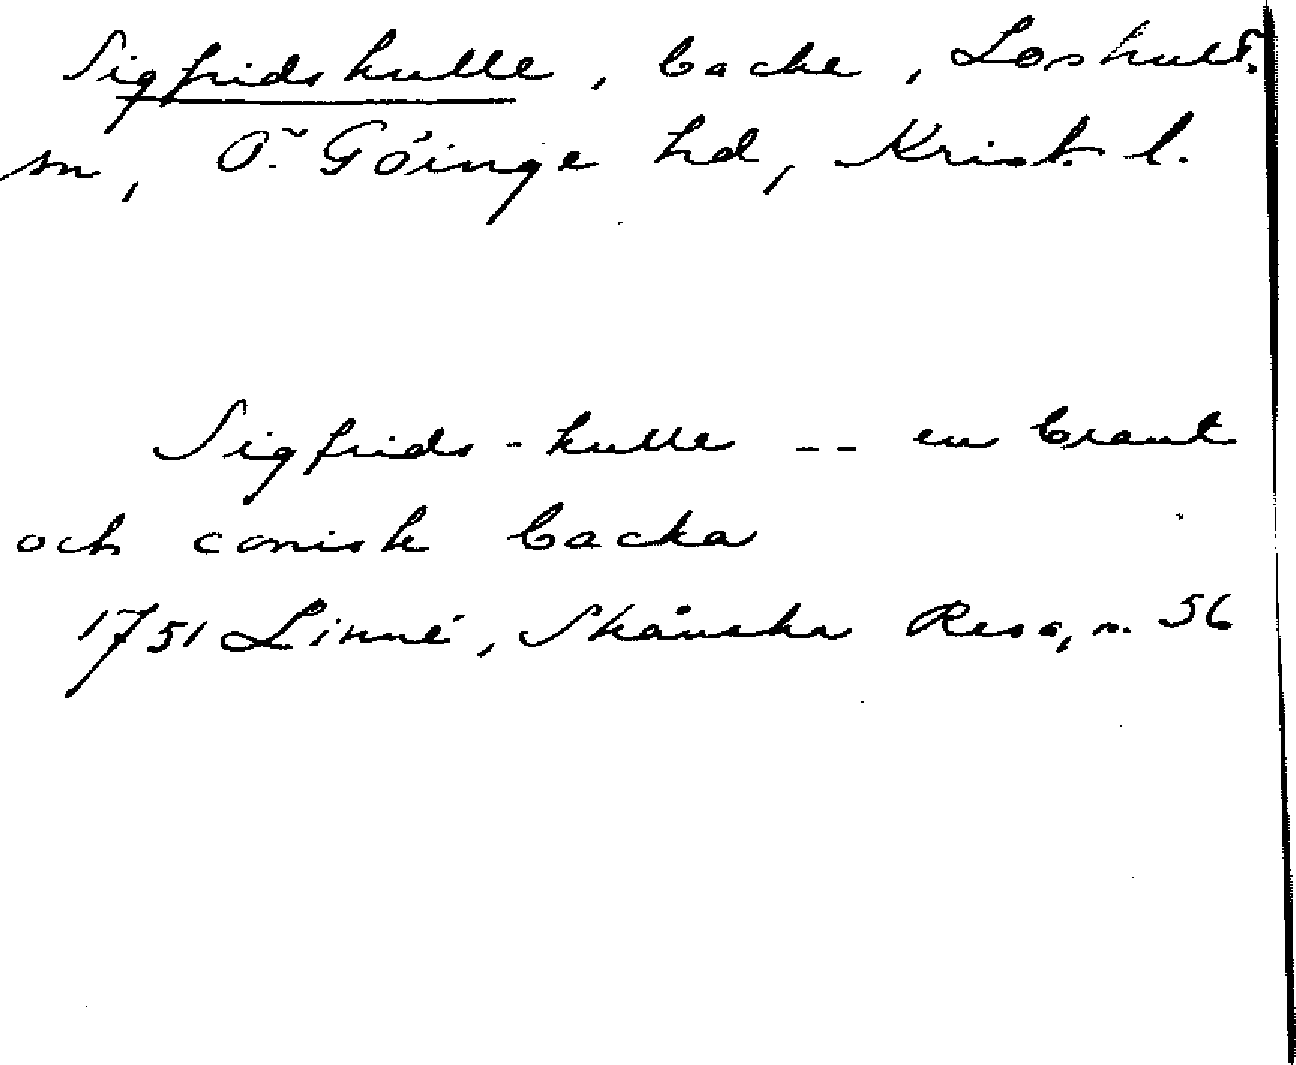 Sigfridskulle, backe, Loshults
sn, Ö. Göinge hd, Krist. l.
Sigfrids-kulle -- en brant
och conisk backa
1751 Linné, Skånska Resa, s. 56